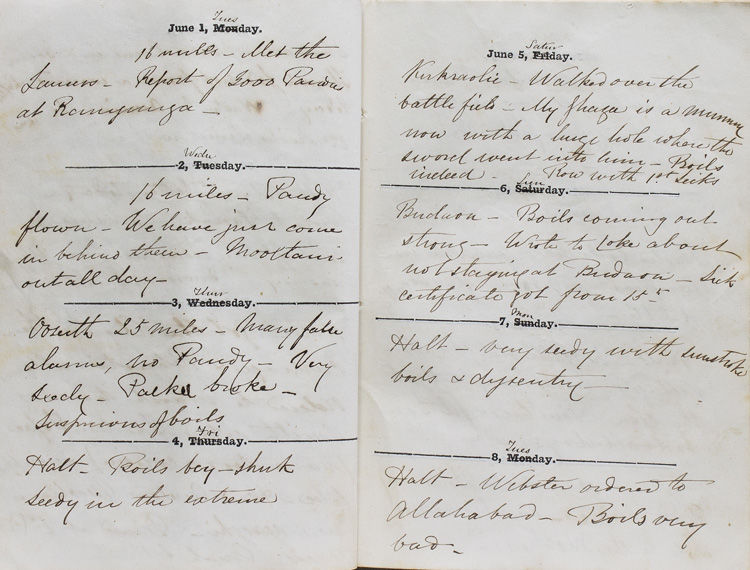 Tues
June 1, Monday.
16 miles – Met the
Lancers – Report of 3000 Pandies
at Ramgunga –
Wedn
2, Tuesday.
16 miles – Pandy
flown – We have just come
in behind them – Mooltani
out all day –
Thur
3, Wednesday.
25 miles – Many false
alarms, no Pandy – Very
seedy – Palkee broke –
Suspicions of boils
Fri
4, Thursday.
Halt – Boils
seedy in the extreme
Satur
June 5, Friday.
Kirkraolie – Walked over the
battle field – My ghaza is a mummy
now with a huge hole where the
sword went into him – Boils
indeed – Row with 1st Sicks
Sun
6, Saturday.
Budaon – Boils coming out
strong – Wrote to Loke about
not staying at Budaon – Sick
certificate got from 15th
Mon
7, Sunday.
Halt – very seedy with sunstroke
boils & dysentry –
Tues
8, Monday.
Halt – Webster ordered to
Allahabad – Boils very
bad –